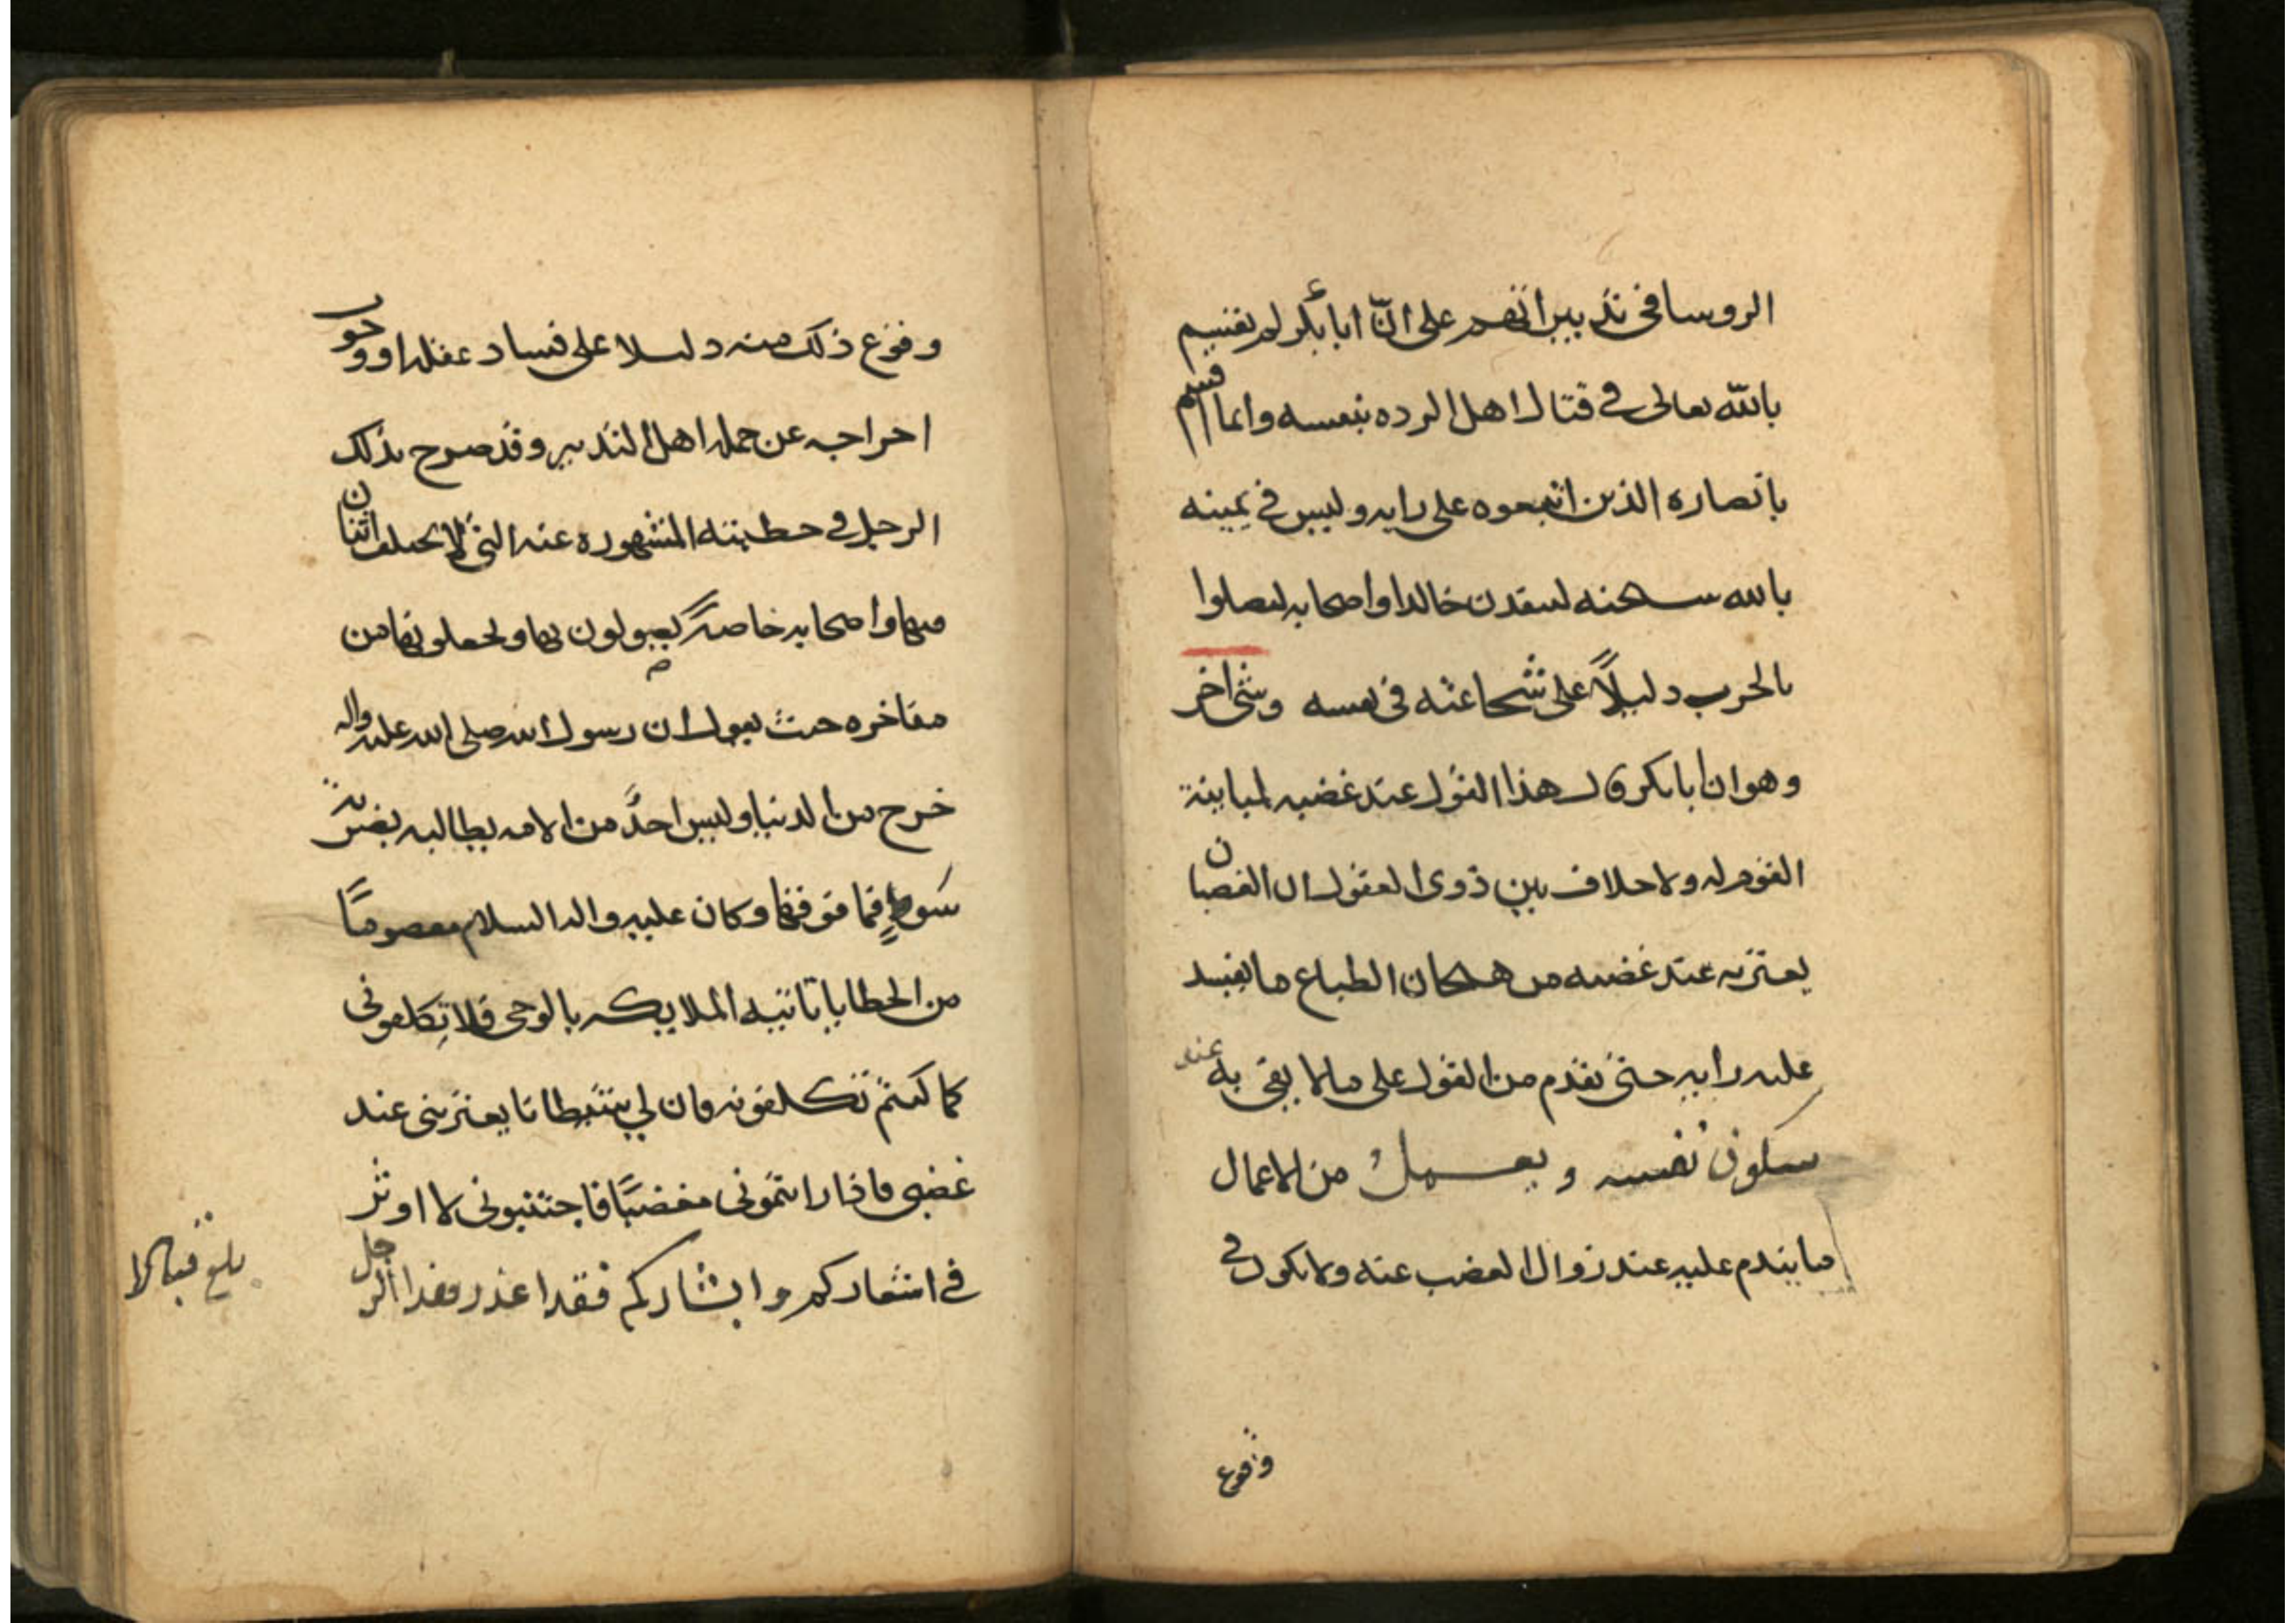 الروسا فى تدبيراتهم على انّ ابا بكر لم يقسم
بالله تعالى في قتال اهل الرده بنفسه وانما اقسم
بانصاره الذين اتبعوه على رايه وليس في يمينه
بالله سبحنه لينفدن خالدا واصحابه ليصلوا
بالحرب دليلاً على شجاعته في نفسه وشى اخر
وهو ان ابا بكر قال هذا القول عند غضبه لمباينة
القوم له ولا خلاف بين ذوى العقول ان الغضبان
يعتريه عند غضبه من هيجان الطباع ما يفسد
عليه رايه حتى يقدم من القول على ما لا يفى به عند
سكون نفسه و يعمل من الاعمال
ما يندم عليه عند زوال الغضب عنه ولا يكون في
وقوع
وقوع ذلك منه دليلا على فساد عقله او وجوب
اخراجه عن جمله اهل التدبير وقد صرح بذلك
الرجل في خطبته المشهوره عنه التي لا يختلف اثنان
فيها واصحابه خاصةً يصولون بها ويجعلونها من
مفاخره حيث يقول ان رسول الله صلى الله عليه واله
خرج من الدنيا وليس احدٌ من الامه يطالبه بضربة
سوطٍ فما فوقها وكان عليه واله السلام معصوماً
من الخطايا تاتيه الملايكه بالوحى فلا تكلفونى
كما كنتم تكلفونه فان لي شيطانا يعترينى عند
غضبى فاذا رايتمونى مغضباً فاجتنبونى لا اوثر
في اشعاركم وابشاركم فقد اعذر هذا الرجل
بلغ قبالا